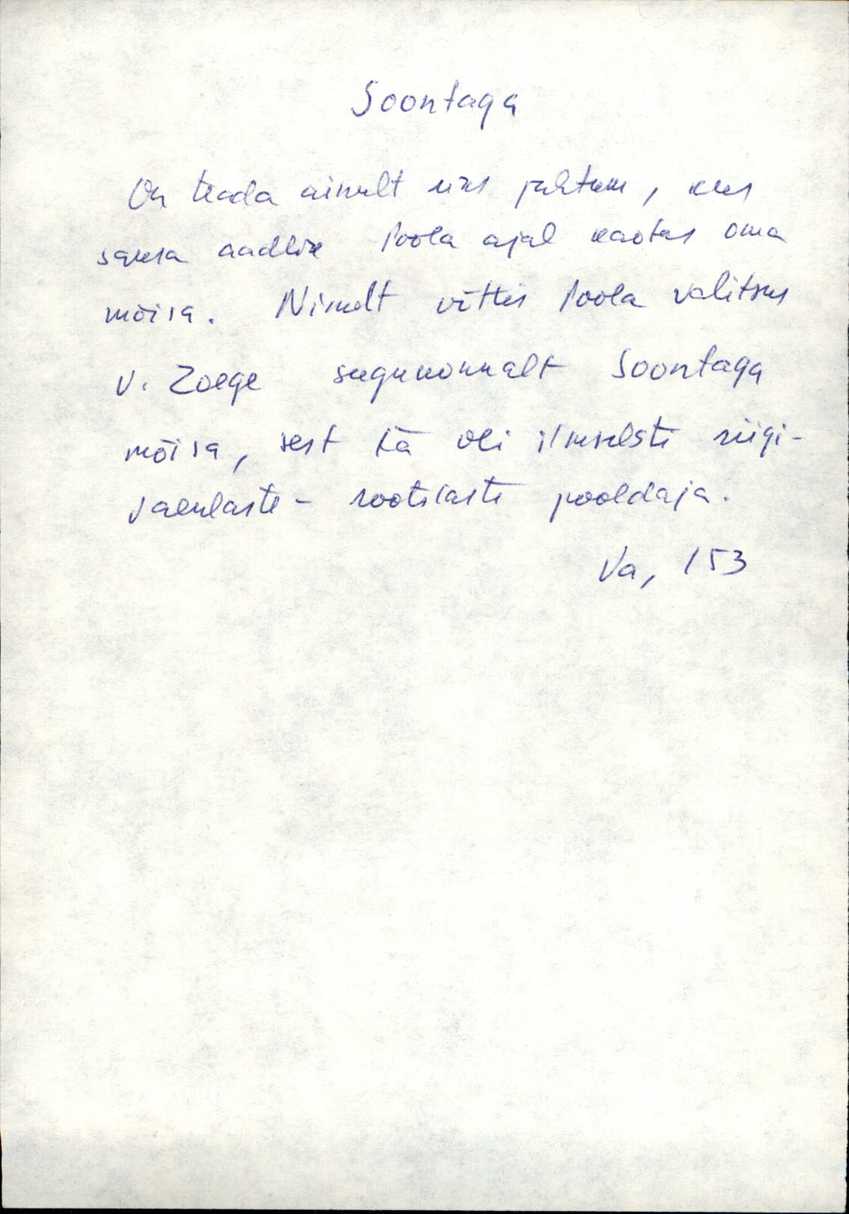 Soontaga
On teada ainult üks juhtum, kus
saksa aadlik Poola ajal kaotas oma
mõisa. Nimelt võttis Poola valitsus
v. Zoege sugukonnalt Soontaga
mõisa, sest ta oli ilmselste riigi-
vaenlaste - rootslaste pooldaja.
Va, 153